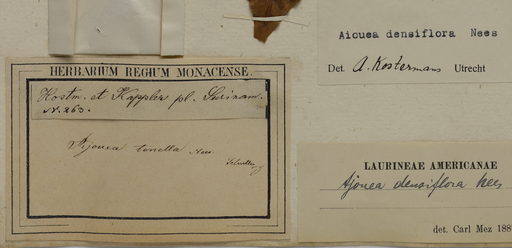 HERBARIUM REGIUM MONACENSE.
Hostm. et Kappler pl. Surinam.
N. 263.
Ajouea tenella Nees
Aiouea densiflora Nees
Det. A. Kostermans Utrecht
LAURINEAE AMERICANAE
Ajouea densiflora Nees
det. Carl Mez 188